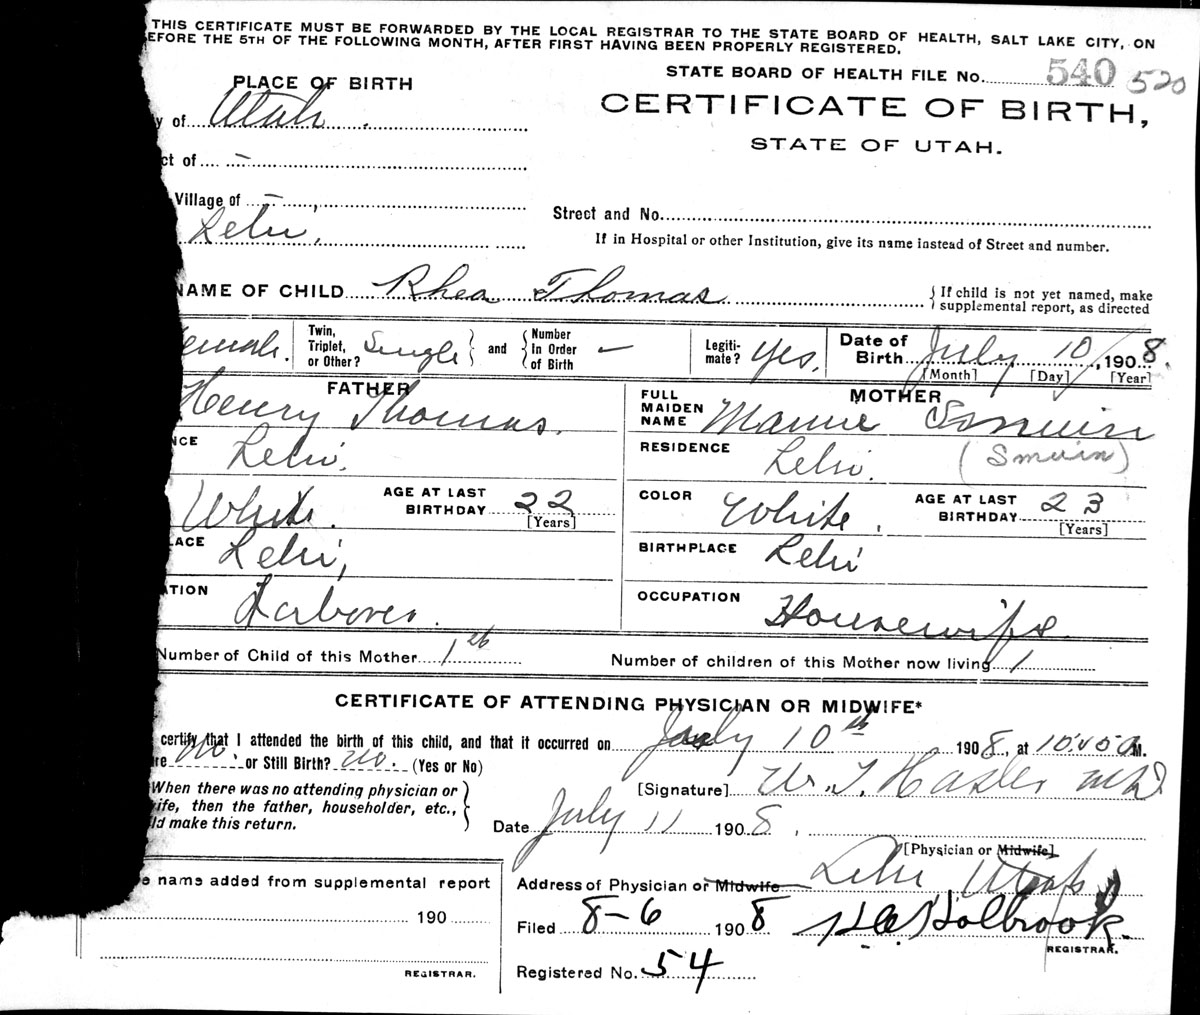 THIS CERTIFICATE MUST BE FORWARDED BY THE LOCAL REGISTRAR TO THE STATE BOARD OF HEALTH, SALT LAKE CITY, ON
EFORE THE 5TH OF THE FOLLOWING MONTH, AFTER FIRST HAVING BEEN PROPERLY REGISTERED.
STATE BOARD OF HEALTH FILE No. 540 520
PLACE OF BIRTH
CERTIFICATE OF BIRTH,
STATE OF UTAH.
y of Utah.
ct of —
Village of —,
Lehi,
Street and No.
If in Hospital or other Institution, give its name instead of Street and number.
NAME OF CHILD Rhea Thomas { If child is not yet named, make
supplemental report, as directed
emale. Twin, Triplet, or Other? Single } and { Number In Order of Birth — Legiti-mate? Yes, Date of Birth July 10, 1908.
[Month] [Day] [Year]
FATHER
Henry Thomas.
FULL MAIDEN NAME MOTHER
Mamie Smuin
(Smuin)
NCE Lehi.
RESIDENCE Lehi.
White. AGE AT LAST BIRTHDAY 22
[Years]
COLOR White. AGE AT LAST BIRTHDAY 23
[Years]
LACE Lehi,
BIRTHPLACE Lehi
TION Laborer.
OCCUPATION Housewife
Number of Child of this Mother 1st
Number of children of this Mother now living 1
CERTIFICATE OF ATTENDING PHYSICIAN OR MIDWIFE*
certify that I attended the birth of this child, and that it occurred on July 10th 1908, at 10:45 A.M.
re no. or Still Birth? no. (Yes or No)
When there was no attending physician or
ife, then the father, householder, etc.,
ld make this return.
[Signature] W. T. Hasler M.D.
Date July 11 1908,
[Physician or Midwife]
Address of Physician or Midwife Lehi Utah
e name added from supplemental report
190
REGISTRAR.
Filed 8-6 1908 Holbrook.
REGISTRAR.
Registered No. 54